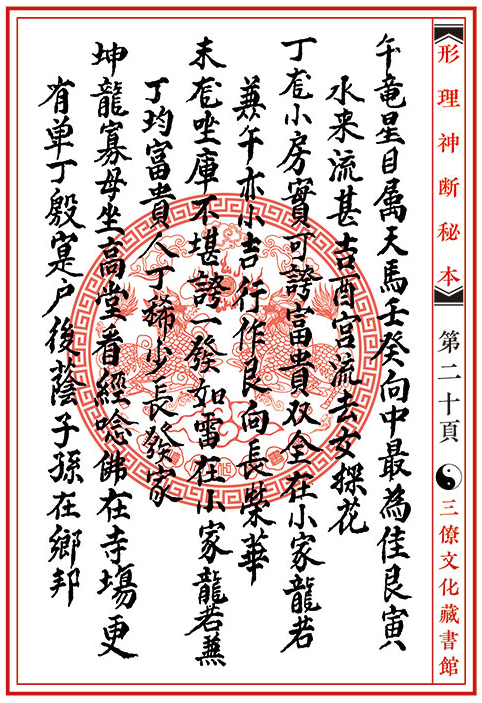 形理神断秘本
第二十頁
三僚文化藏書館
午竜星日属天馬壬癸向中最為佳艮寅
水来流甚吉酉宫流去女採花
丁龙小房實可誇富貴双全在小家龍若
兼午亦小吉行作艮向長榮華
未龙坐庫不堪誇一發如雷在小家龍若兼
丁均富貴人丁稀少長發家
坤龍寡母坐高堂看經唸佛在寺塲更
有单丁殷寔户後蔭子孫在鄉邦